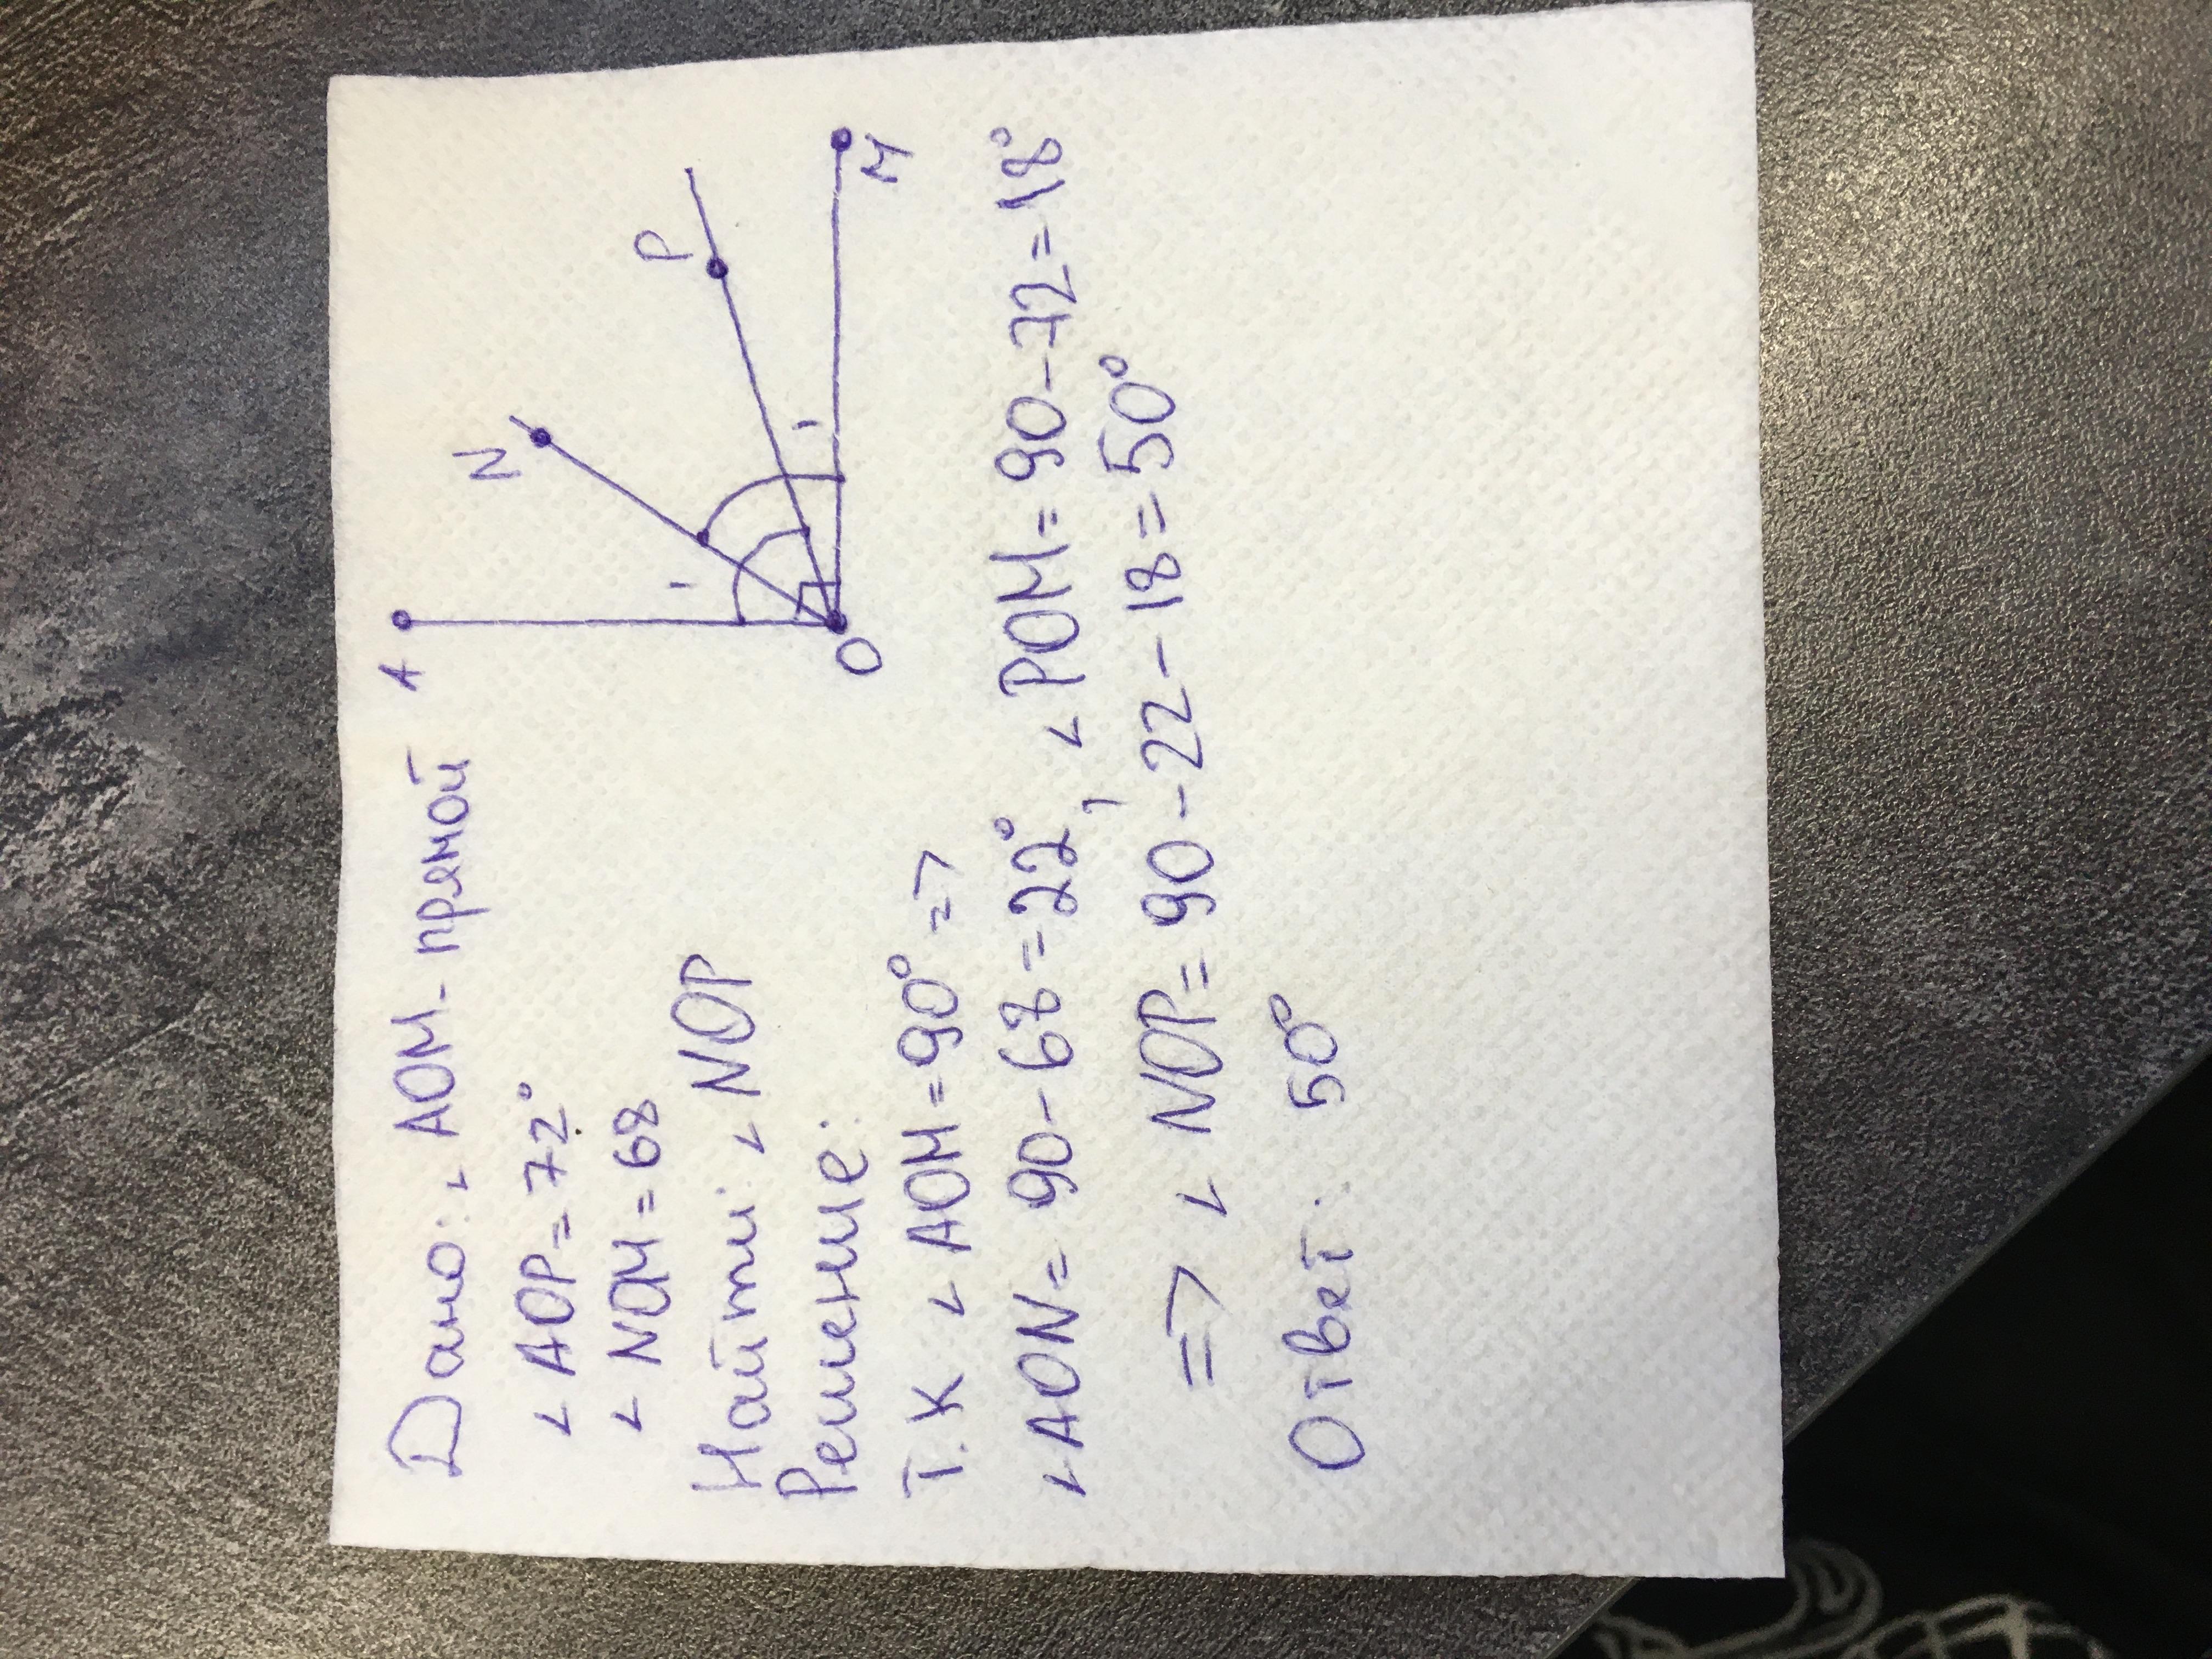 Дано: ∠ AOM - прямой
∠ AOP = 72°
∠ NOM = 68
Найти: ∠ NOP
Решение:
Т.К ∠ AOM = 90° =>
∠AON = 90 - 68 = 22°, ∠ POM = 90 - 72 = 18°
=> ∠ NOP = 90 - 22 - 18 = 50°
Ответ: 50°
A
N
P
O
M